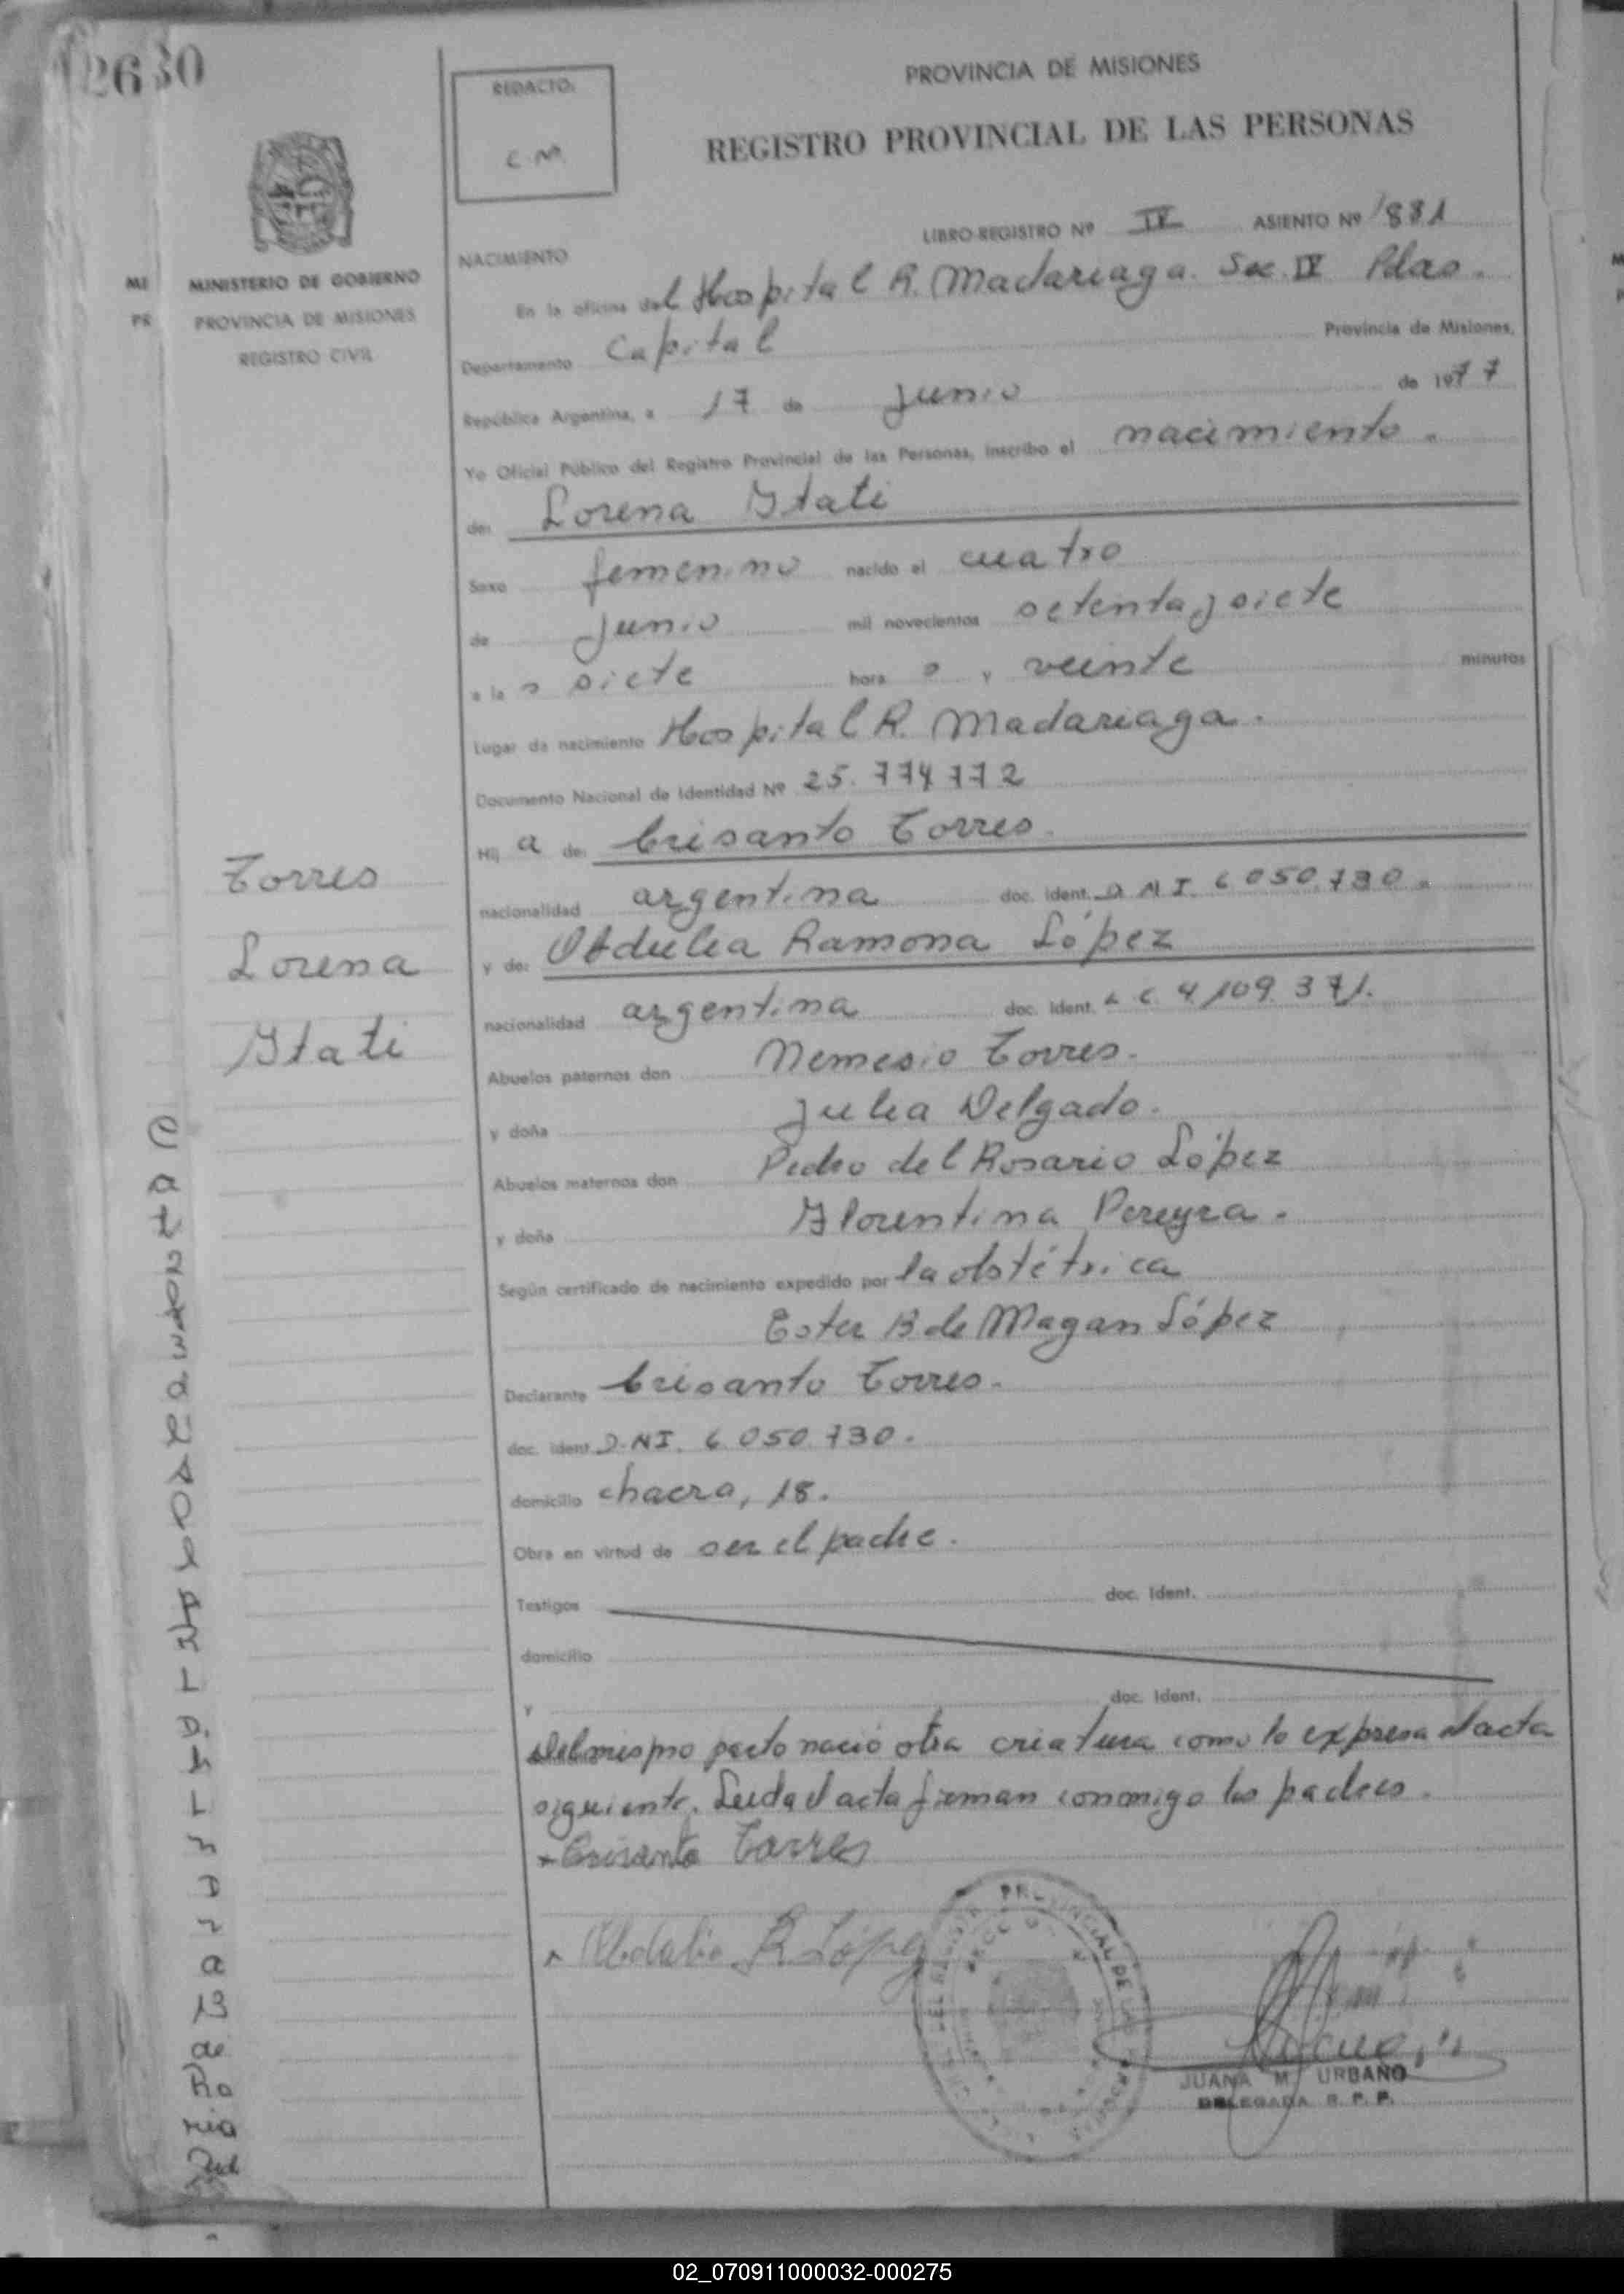 12630
REDACTO:
C.M.
PROVINCIA DE MISIONES
REGISTRO PROVINCIAL DE LAS PERSONAS
LIBRO-REGISTRO Nº IV ASIENTO Nº 1881
MINISTERIO DE GOBIERNO
PROVINCIA DE MISIONES
REGISTRO CIVIL
MI
PR
NACIMIENTO
En la oficina del Hospital R. Madariaga. Sec. IV Pdas.
Departamento Capital Provincia de Misiones,
República Argentina, a 17 de Junio de 1977
Yo Oficial Público del Registro Provincial de las Personas, inscribo el nacimiento.
de: Lorena Itati
Sexo femenino nacido el cuatro
de Junio mil novecientos setenta y siete
a la s siete hora s y veinte minutos
Lugar de nacimiento Hospital R. Madariaga.
Documento Nacional de Identidad Nº 25.774772
Hij a de: Crisanto Torres.
nacionalidad argentina doc. ident. D N I. 6 050.730.
y de: Obdulia Ramona López
nacionalidad argentina doc. ident. L C. 4.109.371.
Abuelos paternos don Nemesio Torres.
y doña Julia Delgado.
Abuelos maternos don Pedro del Rosario López
y doña Florentina Pereyra.
Según certificado de nacimiento expedido por la obstétrica
Ester B de Magan López
Declarante Crisanto Torres.
doc. ident. D.NI. 6 050 730.
domicilio chacra, 18.
Obra en virtud de ser el padre.
Testigos doc. ident.
domicilio
y doc. ident.
Del mismo parto nació otra criatura como lo expresa el acta
siguiente. Leida el acta firman conmigo los padres.
Crisanto Torres
Obdulia R López
JUANA M. URBANO
DELEGADA R. P. P.
Torres
Lorena
Itati
02_070911000032-000275